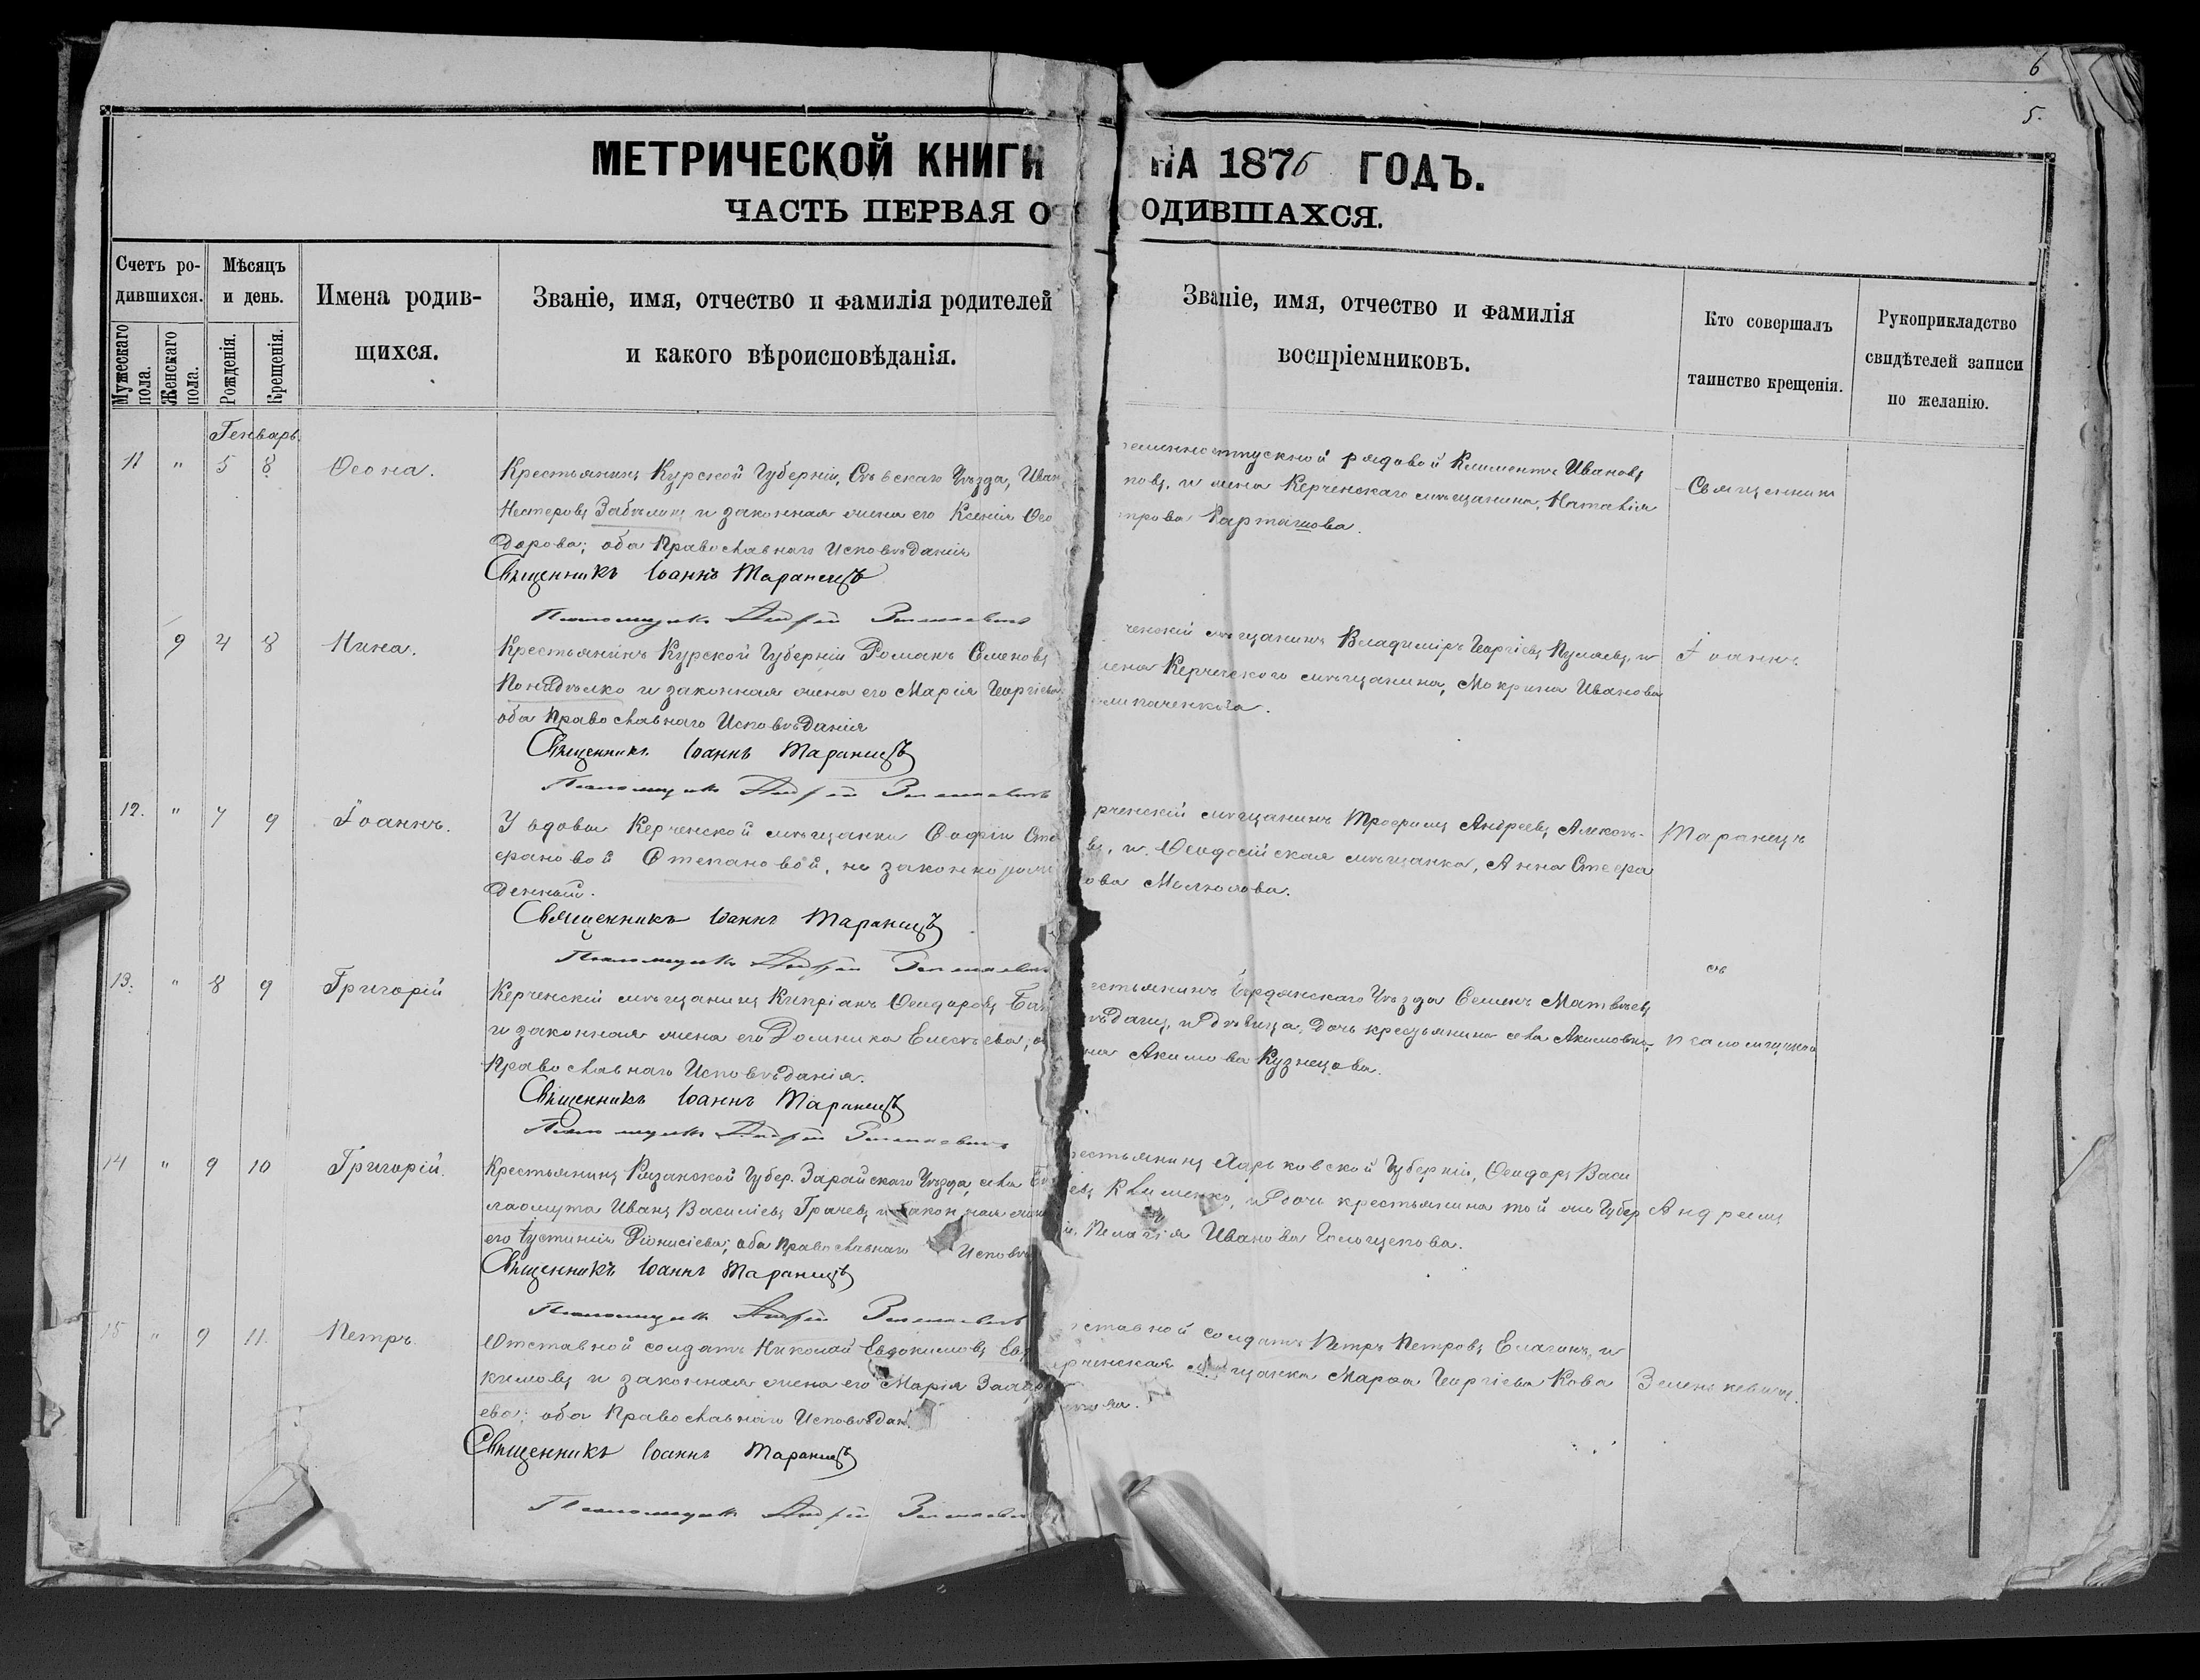 6
5.
МЕТРИЧЕСКОЙ КНИГИ НА 1876 ГОДЪ.
ЧАСТЬ ПЕРВАЯ О ОДИВШАХСЯ.
Счетъ ро-
дившихся.
Мужескаго пола.
Женскаго пола.
Мѣсяцъ
и день.
Рожденія.
Крещенія.
Имена родив-
щихся.
Званіе, имя, отчество и фамилія родителей
и какого вѣроисповѣданія.
Званіе, имя, отчество и фамилія
воспріемниковъ.
Кто совершалъ
таинство крещенія.
Рукоприкладство
свидѣтелей записи
по желанію.
Генварь.
11 " 5 8 Ѳеона.
Крестьянинъ Курской Губерніи, Уѣзда, Иван
Нестеровъ и законная жена его Ксенія Ѳео
дорова; оба Православнаго Исповѣданія
Священникъ Іоаннъ Таранецъ
Псаломщикъ Андрей Зеленкевичъ
рядовой Климентъ Ивановъ
новъ, и жена Керченскаго мѣщанина, Наталія
трова Карташова.
Священник
9 4 8 Нина.
Крестьянинъ Курской Губерніи Романъ Семеновъ
и законная жена его Марія Георгіева
оба Православнаго Исповѣданія
Священникъ Іоаннъ Таранецъ
Псаломщикъ Андрей Зеленкевичъ
ченскій мѣщанинъ Владиміръ Георгіевъ и
жена Керченскаго мѣщанина, Мокрина Иванова
Іоаннъ
12. " 7 9 Іоаннъ.
У вдовы Керченской мѣщанки Софіи Сте
фановой Степановой, не законнорож
денный.
Священникъ Іоаннъ Таранецъ
Псаломщикъ Андрей Зеленкевичъ
рченскій мѣщанинъ Трофимъ Андреевъ
въ, и Ѳеодосійская мѣщанка, Анна Стефа
ова
Таранецъ
13. " 8 9 Григорій
Керченскій мѣщанинъ Кипріанъ Ѳеодоровъ
и законная жена его Домника Елисѣева; о
Православнаго Исповѣданія.
Священникъ Іоаннъ Таранецъ
Псаломщикъ Андрей Зеленкевичъ
естьянинъ Бердянскаго Уѣзда Семенъ Матвѣевъ
и дѣвица, дочь крестьянина села Акимовки,
на Акимова Кузнецова.
съ
псаломщикомъ
14 " 9 10 Григорій.
Крестьянинъ Рязанской Губер. Зарайскаго Уѣзда, села
Иванъ Василіевъ Грачевъ и законная жена
его Іустинія Діонисіева; оба Православнаго Исповѣ
Священникъ Іоаннъ Таранецъ
Псаломщикъ Андрей Зеленкевичъ
рестьянинъ Харьковской Губерніи, Ѳеодоръ Васи
евъ Клименко, и дочь крестьянина той же Губер
іи, Пелагія Иванова
Андреемъ
15 " 9 11. Петръ.
Отставной солдатъ Николай Евдокимовъ Евд
кимовъ и законная жена его Марія
ева; оба Православнаго Исповѣдан
Священникъ Іоаннъ Таранецъ
Псаломщикъ Андрей Зеленкевичъ
ставной солдатъ Петръ Петровъ Елагинъ, и
рченская мѣщанка Марѳа Георгіева Кова
Зеленкевичемъ.